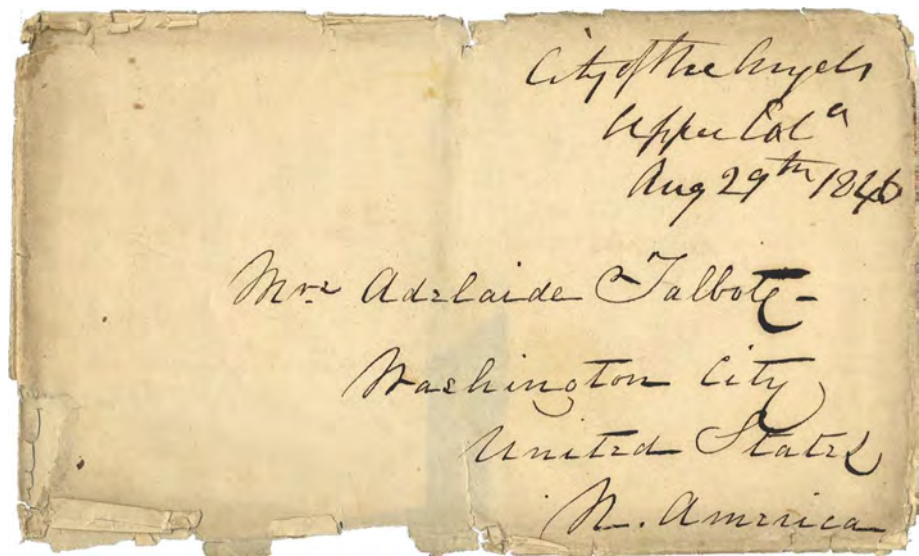 City of the Angels
Upper Cala
Aug 29th 1846
Mrs Adelaide Talbot
Washington City
United States
N. America